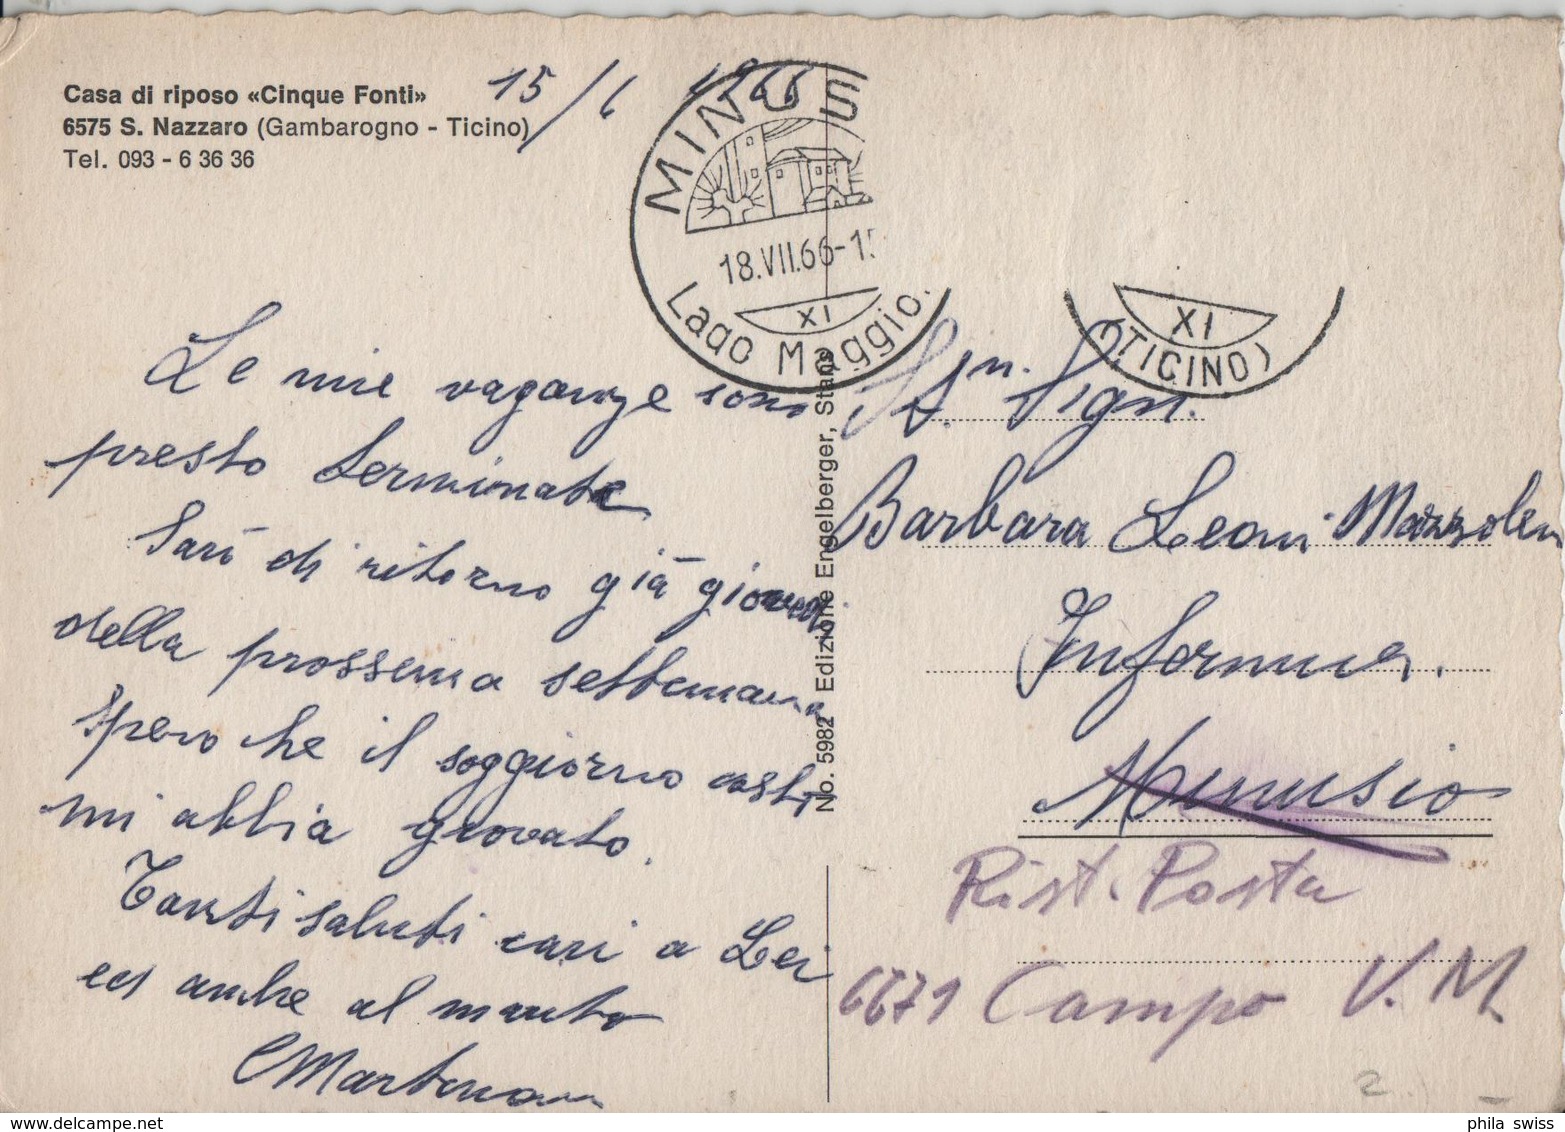 Casa di riposo «Cinque Fonti»
6575 S. Nazzaro (Gambarogno - Ticino)
Tel. 093 - 6 36 36
15/6 1966
MINUS
18.VII.66-15
XI
Lago Maggio.
XI
(TICINO)
Le mie vaganze sono
presto terminate
Sarò di ritorno già giovedì
della prossema settemana
Spero che il soggiorno costì
mi abbia giovato.
Tanti saluti cari a Lei
ed anche al marito
Martina
No. 5982 Edizione Engelberger, Stans
Sign.
Barbara Leoni Mazzoleni
Infermiera.
Minusio
Rist. Posta
6671 Campo V. M.
2
phila swiss